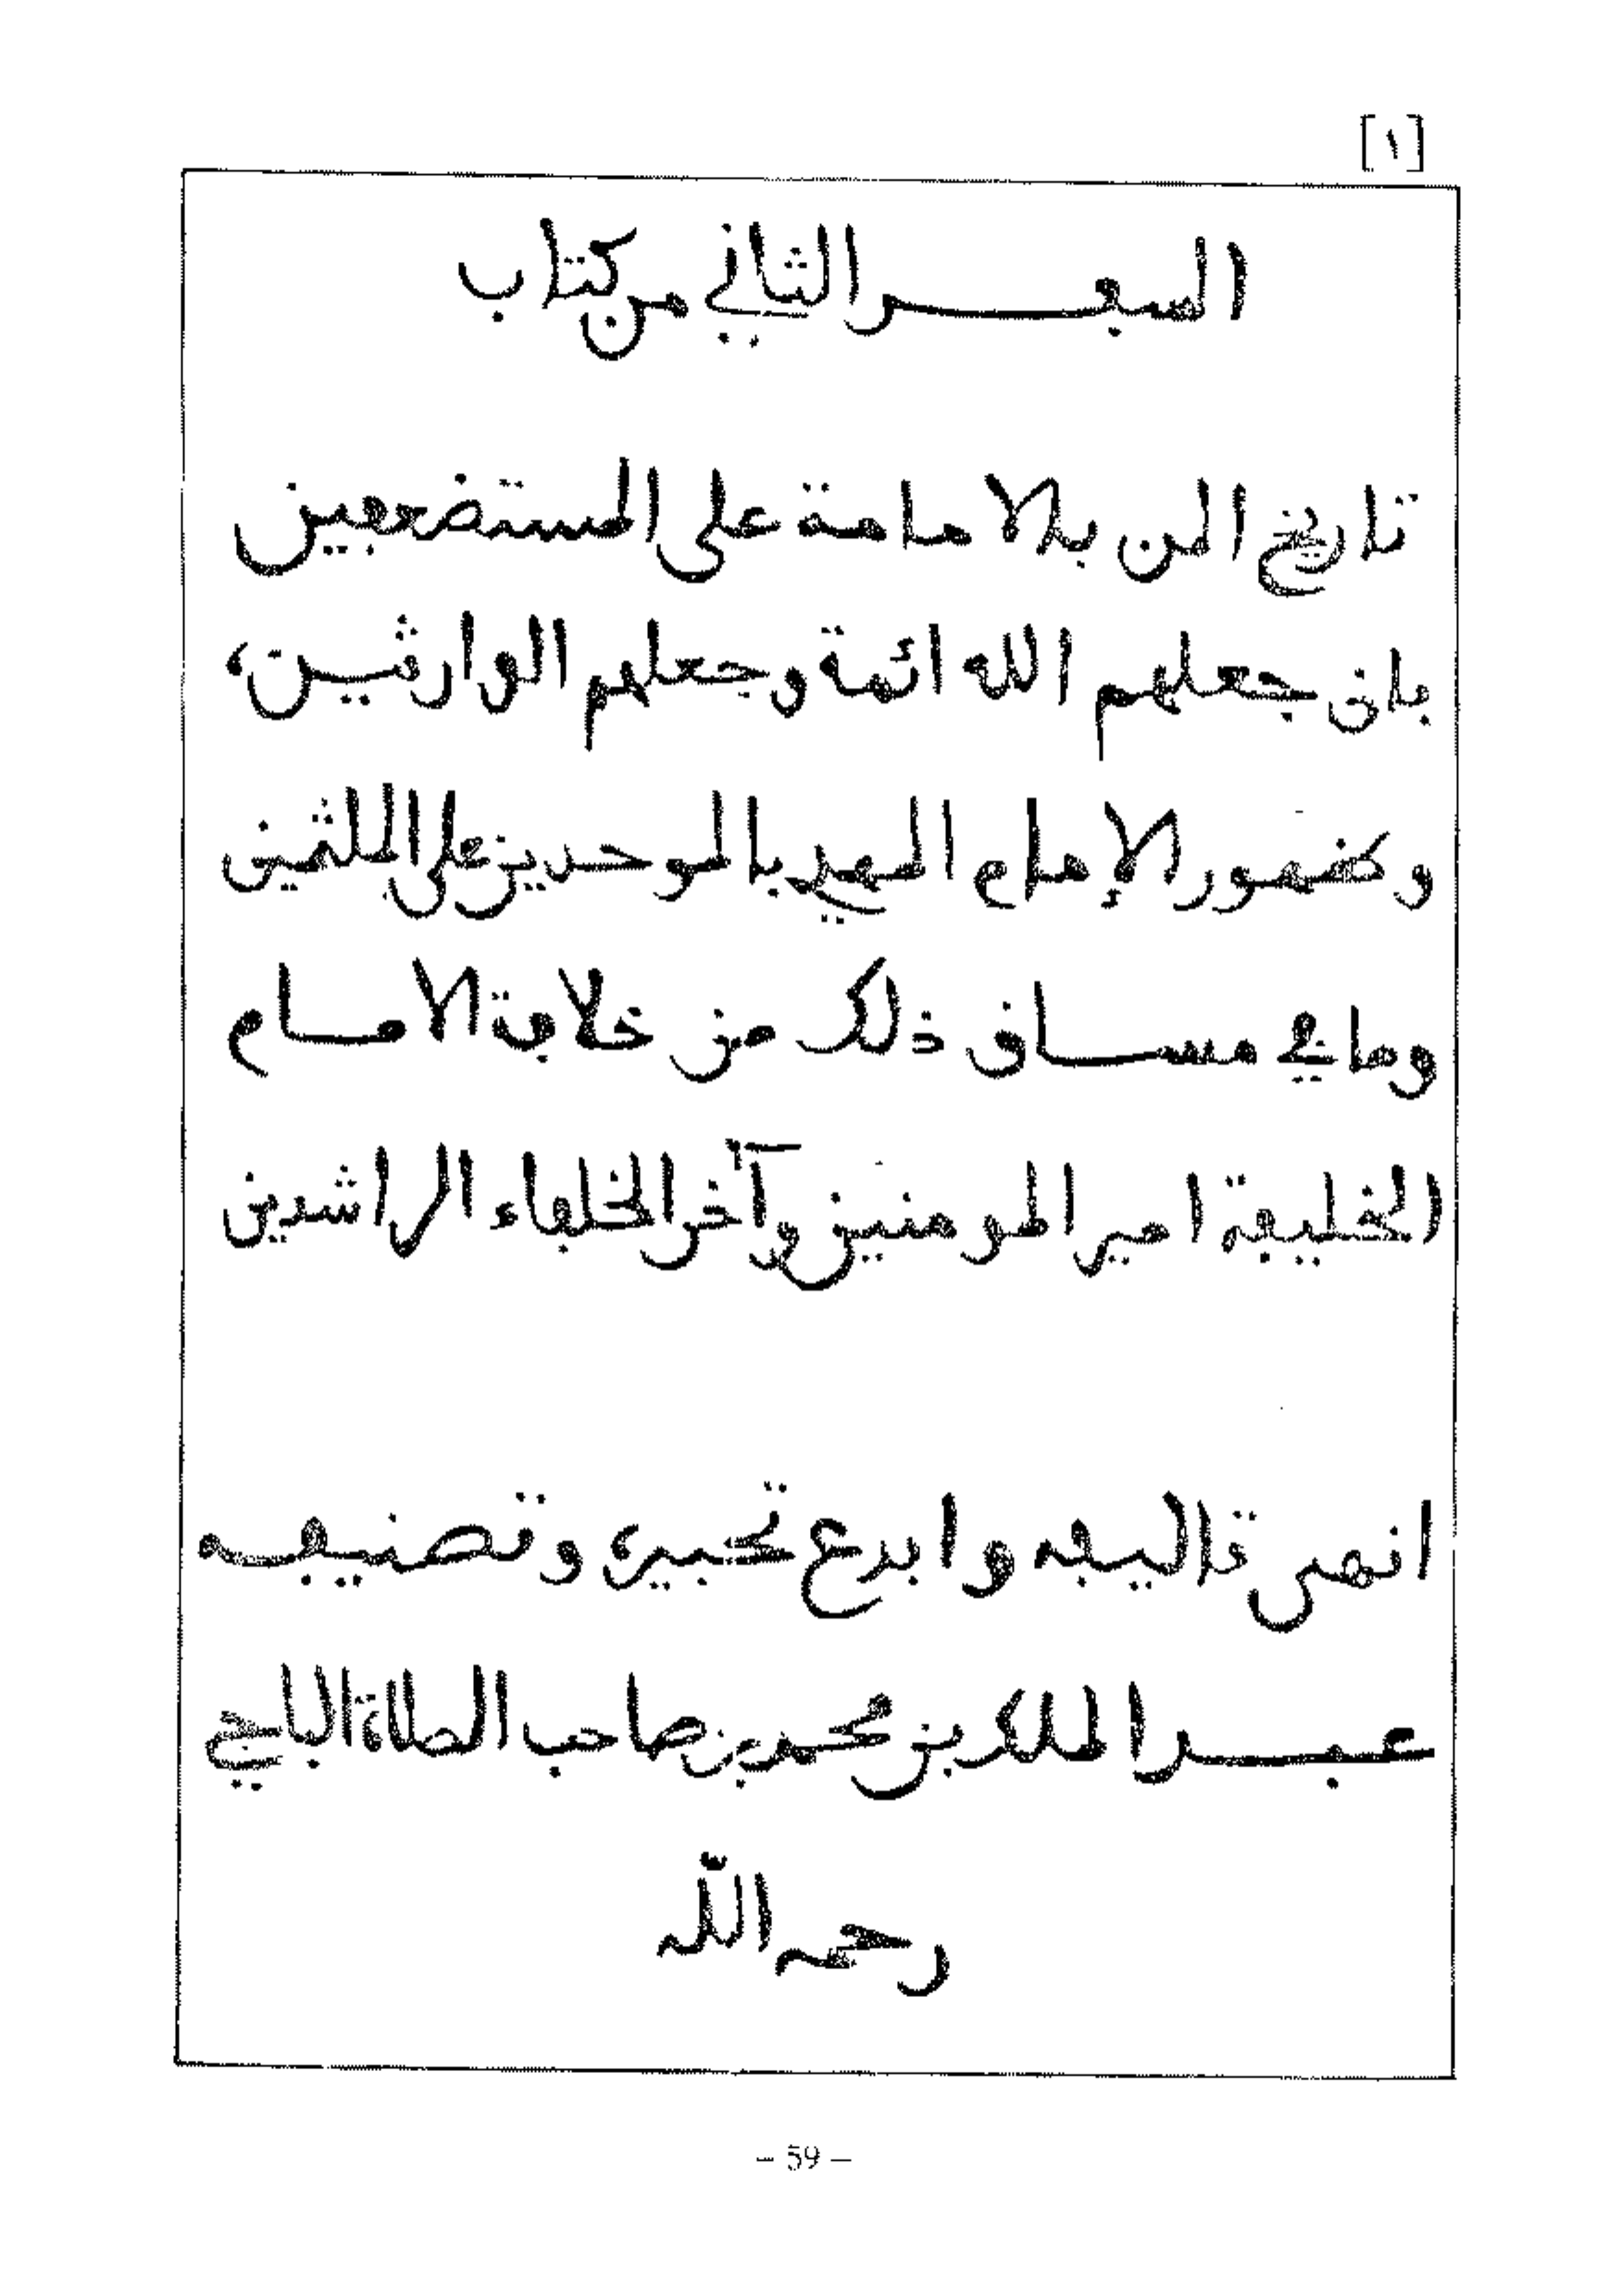 [١]
السفر الثاني من كتاب
تاريخ المن بالامامة على المستضعفين
بان جعلهم الله ائمة وجعلهم الوارثين،
وظهور الإمام المهدي بالموحدين على الملثمين
وما في مساق ذلك من خلافة الامام
الخليفة امير المومنين وآخر الخلفاء الراشدين
انهى تاليفه وابدع تحبيره وتصنيفه
عبد الملك بن محمد بن صاحب الصلاة الباجي
رحمه اللّه
– 59 –